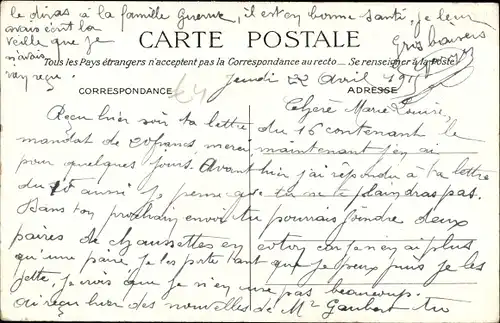 le diras à la famille Guerme, il est en bonne santé, je leur
avais écrit la
veille que je
n'avais
rien reçu.
Gros baisers
CARTE POSTALE
Tous les Pays étrangers n'acceptent pas la Correspondance au recto — Se renseigner à la poste
CORRESPONDANCE
ADRESSE
Jeudi 22 avril 1915
Chère Marie Louise,
Reçu hier soir ta lettre du 16 contenant le
mandat de 20 francs, merci maintenant j'en ai
pour quelques jours. Avant hier j'ai répondu à ta lettre
du 15 aussi je pense que tu ne te plaindras pas.
Dans ton prochain envoi tu pourrais joindre deux
paires de chaussettes en coton car je n'en ai plus
qu'une paire, je les porte tant que je peux puis je les
jette, je crois que je n'en use pas beaucoup.
Ai reçu hier des nouvelles de Mr Gaubert tu